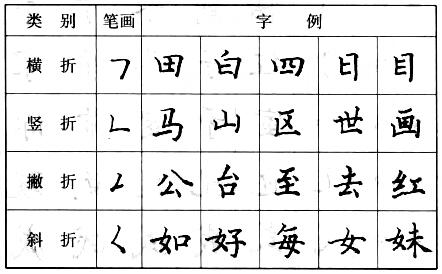 类 别 笔画 字 例
横 折 ㇕ 田 白 四 日 目
竖 折 ㇗ 马 山 区 世 画
撇 折 ㇜ 公 台 至 去 红
斜 折 ㇛ 如 好 每 女 妹